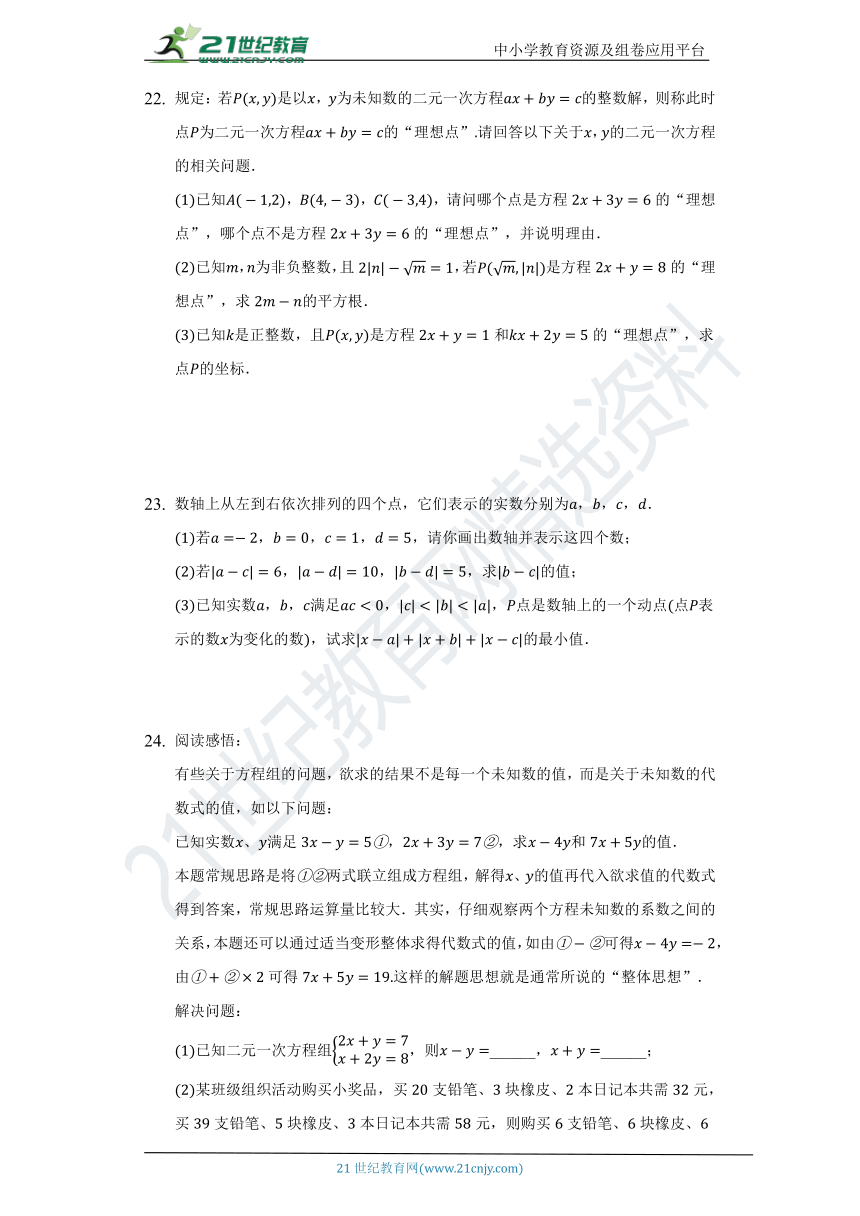 21世纪教育
中小学教育资源及组卷应用平台
22. 规定：若P(x, y)是以x，y为未知数的二元一次方程ax + by = c的整数解，则称此时
点P为二元一次方程ax + by = c的“理想点”.请回答以下关于x，y的二元一次方程
的相关问题．
(1)已知A( − 1,2)，B(4, − 3)，C( − 3,4)，请问哪个点是方程 2x + 3y = 6 的“理想
点”，哪个点不是方程 2x + 3y = 6 的“理想点”，并说明理由．
(2)已知m，n为非负整数，且 2|n| − √m = 1，若P(√m, |n|)是方程 2x + y = 8 的“理
想点”，求 2m − n的平方根．
(3)已知k是正整数，且P(x, y)是方程 2x + y = 1 和kx + 2y = 5 的“理想点”，求
点P的坐标．
23. 数轴上从左到右依次排列的四个点，它们表示的实数分别为a，b，c，d．
(1)若a =− 2，b = 0，c = 1，d = 5，请你画出数轴并表示这四个数；
(2)若|a − c| = 6，|a − d| = 10，|b − d| = 5，求|b − c|的值；
(3)已知实数a，b，c满足ac < 0，|c| < |b| < |a|，P点是数轴上的一个动点(点P表
示的数x为变化的数)，试求|x − a| + |x + b| + |x − c|的最小值．
24. 阅读感悟：
有些关于方程组的问题，欲求的结果不是每一个未知数的值，而是关于未知数的代
数式的值，如以下问题：
已知实数x、y满足 3x − y = 5①，2x + 3y = 7②，求x − 4y和 7x + 5y的值．
本题常规思路是将①②两式联立组成方程组，解得x、y的值再代入欲求值的代数式
得到答案，常规思路运算量比较大．其实，仔细观察两个方程未知数的系数之间的
关系，本题还可以通过适当变形整体求得代数式的值，如由① − ②可得x − 4y =− 2，
由① + ② × 2 可得 7x + 5y = 19.这样的解题思想就是通常所说的“整体思想”．
解决问题：
(1)已知二元一次方程组{2x + y = 7
x + 2y = 8，则x − y =______，x + y =______；
(2)某班级组织活动购买小奖品，买 20 支铅笔、3 块橡皮、2 本日记本共需 32 元，
买 39 支铅笔、5 块橡皮、3 本日记本共需 58 元，则购买 6 支铅笔、6 块橡皮、6
21世纪教育网精选资料
21 世纪教育网(www.21cnjy.com)